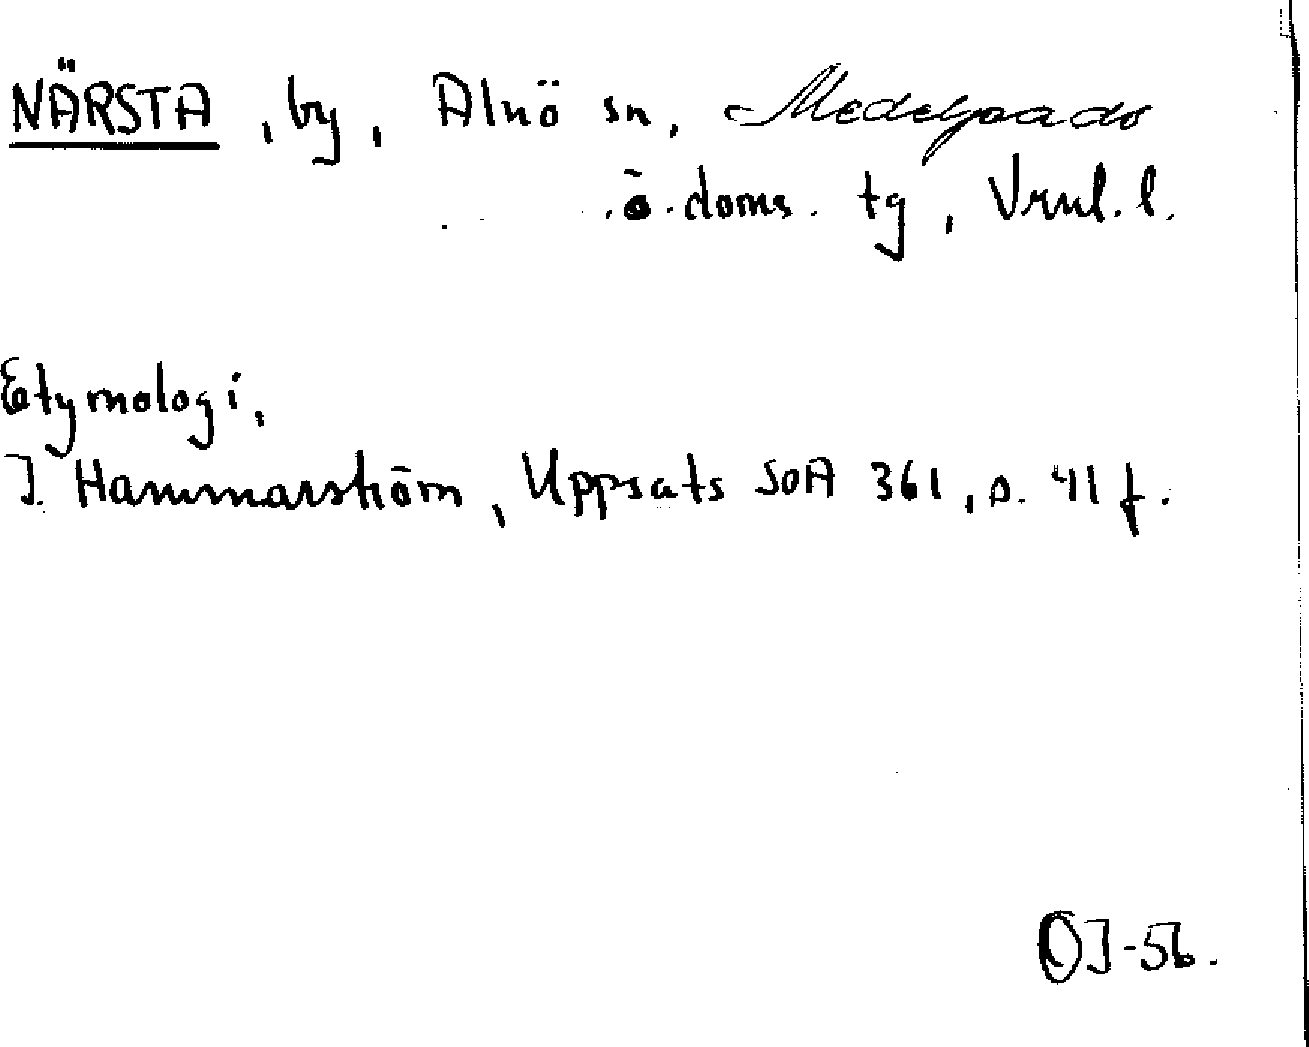 NÄRSTA, by, Alnö sn, Medelpads
ö. doms. tg, Vrnl. l.
Etymologi,
J. Hammarström, Uppsats SOA 361, s. 41 f.
OJ-56.